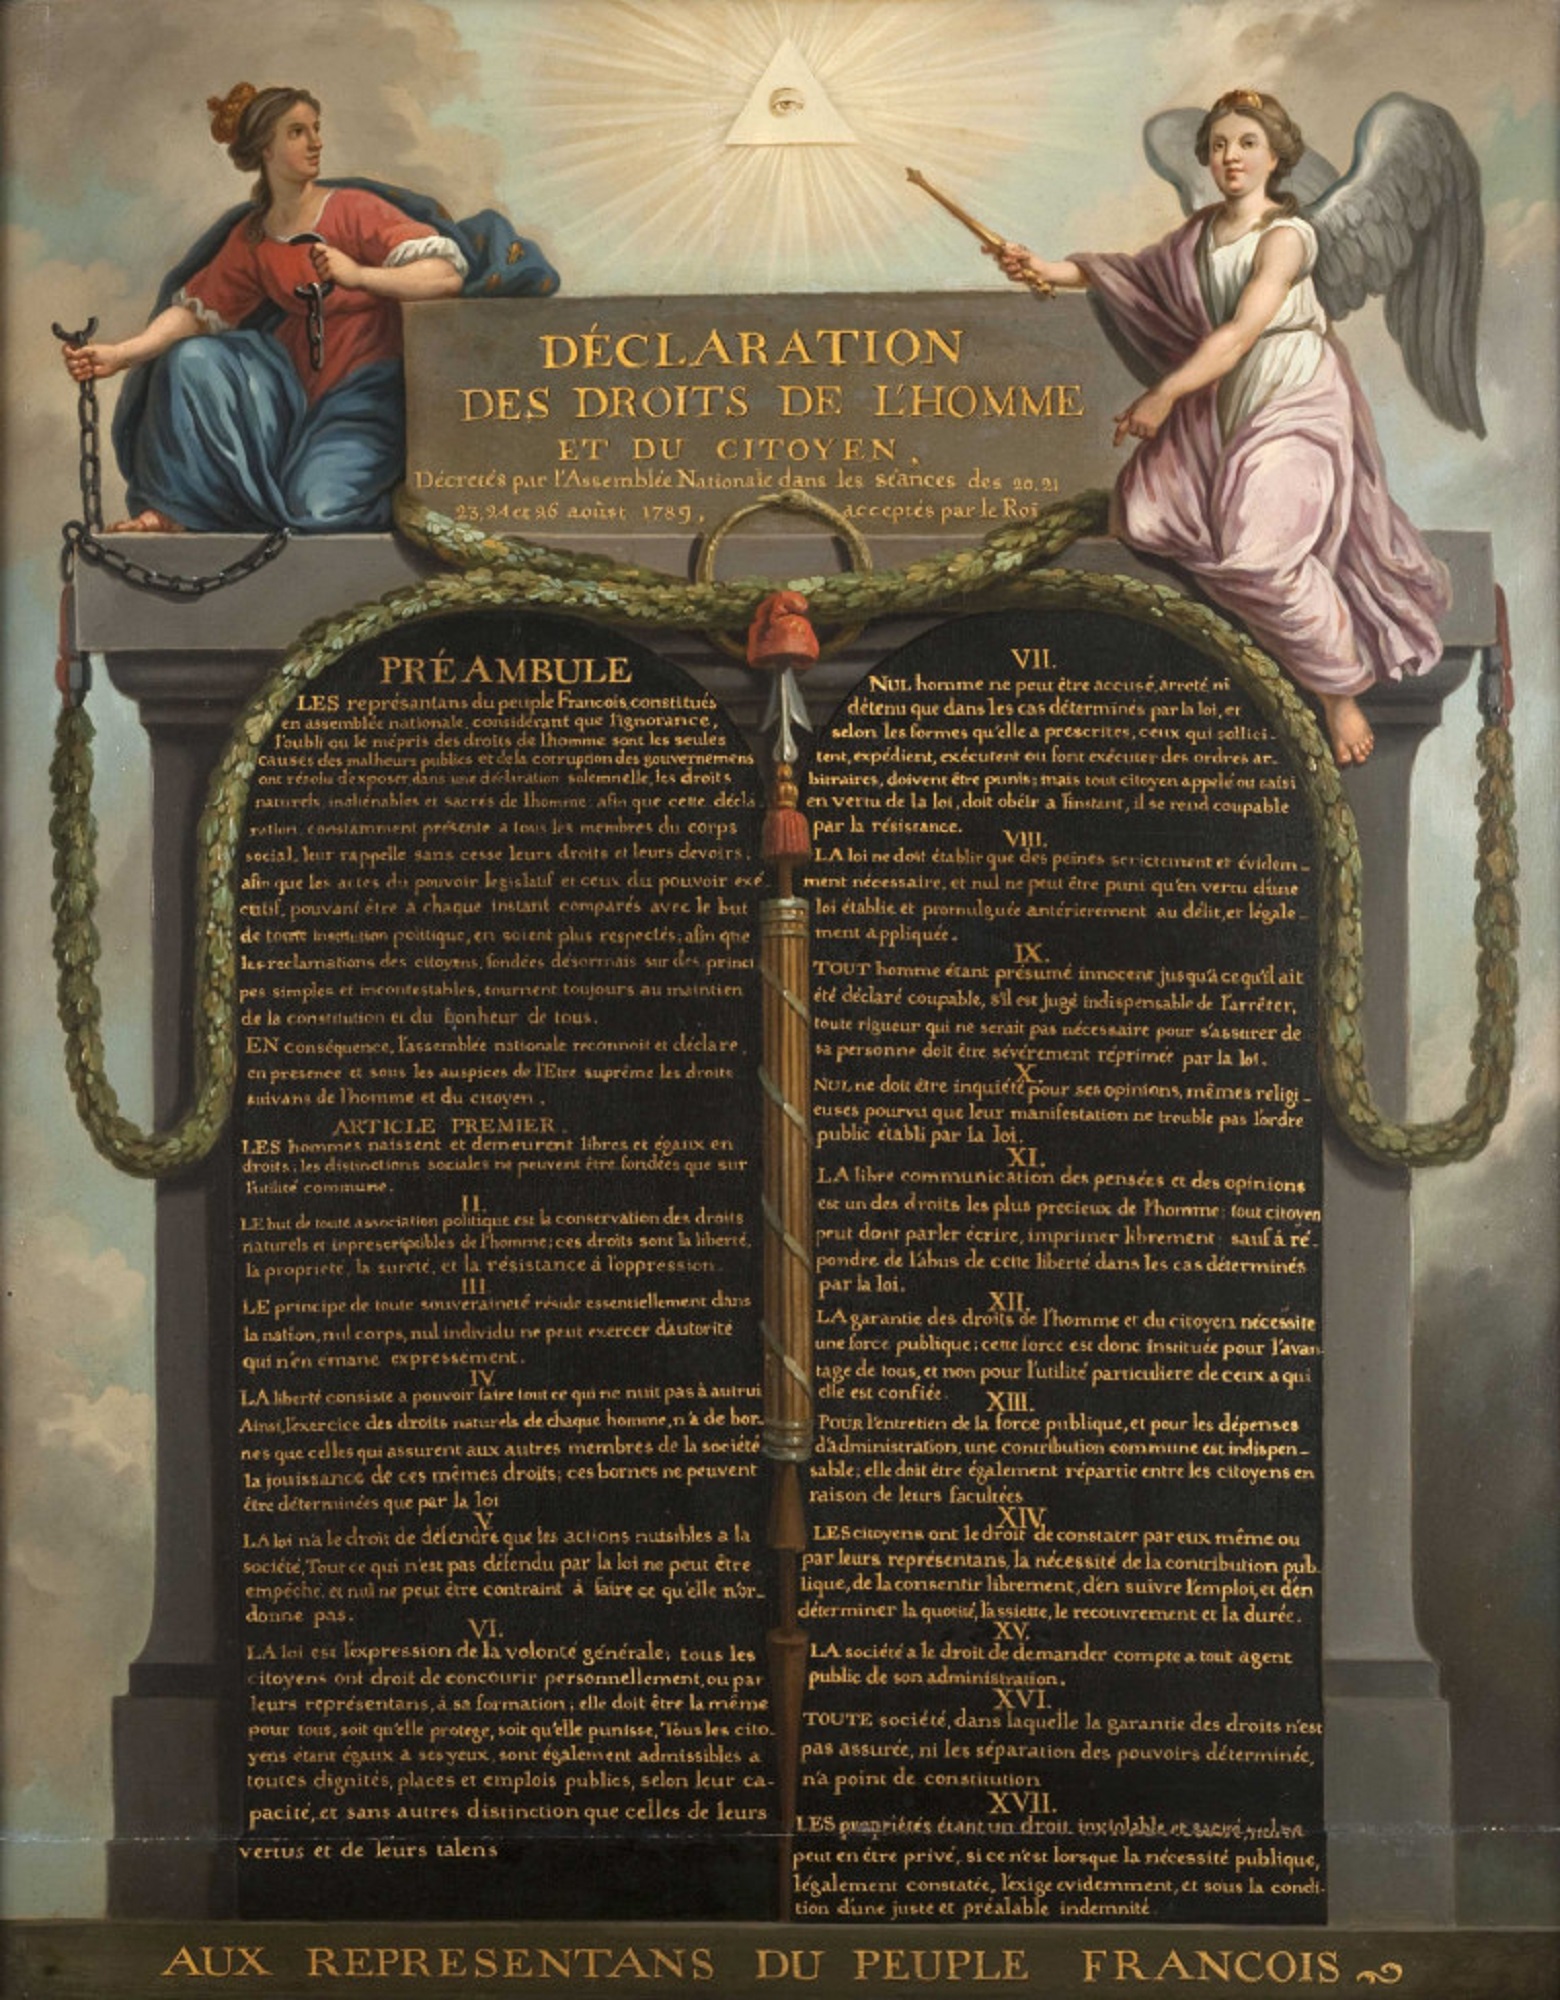 DÉCLARATION
DES DROITS DE L'HOMME
ET DU CITOYEN,
Décretés par l'Assemblée Nationale dans les séances des 20, 21
23, 24 et 26 aoûst 1789, acceptés par le Roi
PRÉAMBULE
LES représantans du peuple Francois, constitués
en assemblée nationale, considérant que l'ignorance,
l'oubli ou le mépris des droits de l'homme sont les seules
causes des malheurs publics et de la corruption des gouvernemens
ont résolu d'exposer dans une déclaration solemnelle, les droits
naturels, inaliénables et sacrés de l'homme: afin que cette décla-
ration, constamment présente a tous les membres du corps
social, leur rappelle sans cesse leurs droits et leurs devoirs,
afin que les actes du pouvoir legislatif et ceux du pouvoir exé-
cutif, pouvant être a chaque instant comparés avec le but
de toute institution politique, en soient plus respectés; afin que
les reclamations des citoyens, fondées désormais sur des princi
pes simples et incontestables, tournent toujours au maintien
de la constitution et du bonheur de tous.
EN conséquence, l'assemblée nationale reconnoit et déclare,
en presence et sous les auspices de l'Etre suprême les droits
suivans de l'homme et du citoyen,
ARTICLE PREMIER.
LES hommes naissent et demeurent libres et égaux en
droits; les distinctions sociales ne peuvent être fondées que sur
l'utilité commune.
II.
LE but de toute association politique est la conservation des droits
naturels et inprescriptibles de l'homme; ces droits sont la liberté,
la propriete, la sureté, et la résistance á l'oppression.
III
LE principe de toute souveraineté réside essentiellement dans
la nation, nul corps, nul individu ne peut exercer d'autorité
qui n'en emane expressement.
IV
LA liberté consiste a pouvoir faire tout ce qui ne nuit pas à autrui
Ainsi, l'exercice des droits naturels de chaque homme, n'a de bor-
nes que celles qui assurent aux autres membres de la société
la jouissance de ces mêmes droits; ces bornes ne peuvent
être déterminées que par la loi
V.
LA loi n'a le droit de défendre que les actions nuisibles a la
société, Tout ce qui n'est pas défendu par la loi ne peut être
empêché, et nul ne peut être contraint à faire ce qu'elle n'or-
donne pas.
VI.
LA loi est l'expression de la volonté générale; tous les
citoyens ont droit de concourir personnellement, ou par
leurs représentans, à sa formation; elle doit être la même
pour tous, soit qu'elle protege, soit qu'elle punisse, Tous les cito-
yens étant égaux à ses yeux, sont également admissibles a
toutes dignités, places et emplois publics, selon leur ca-
pacité, et sans autres distinction que celles de leurs
vertus et de leurs talens
VII.
NUL homme ne peut être accusé, arreté, ni
détenu que dans les cas déterminés par la loi, et
selon les formes qu'elle a prescrites, ceux qui sollici-
tent, expédient, exécutent ou font exécuter des ordres ar-
bitraires, doivent être punis; mais tout citoyen appelé ou saisi
en vertu de la loi, doit obéir a l'instant, il se rend coupable
par la résistance.
VIII.
LA loi ne doit établir que des peines strictement et évidem-
ment nécessaire, et nul ne peut être puni qu'en vertu d'une
loi établie et promulguée antérierement au délit, et légale-
ment appliquée.
IX.
TOUT homme étant présumé innocent jusqu'a ce qu'il ait
été déclaré coupable, s'il est jugé indispensable de l'arrêter,
toute rigueur qui ne serait pas nécessaire pour s'assurer de
sa personne doit être sévèrement réprimée par la loi.
X.
NUL ne doit être inquiété pour ses opinions, mêmes religi-
euses pourvu que leur manifestation ne trouble pas l'ordre
public établi par la loi.
XI.
LA libre communication des pensées et des opinions
est un des droits les plus precieux de l'homme: tout citoyen
peut dont parler écrire, imprimer librement: sauf à ré-
pondre de l'abus de cette liberté dans les cas déterminés
par la loi.
XII.
LA garantie des droits de l'homme et du citoyen nécessite
une force publique; cette force est donc instituée pour l'avan-
tage de tous, et non pour l'utilité particuliere de ceux a qui
elle est confiée.
XIII.
POUR l'entretien de la force publique, et pour les dépenses
d'administration, une contribution commune est indispen-
sable; elle doit être également répartie entre les citoyens en
raison de leurs facultées
XIV.
LES citoyens ont le droit de constater par eux même ou
par leurs représentans, la nécessité de la contribution pub-
lique, de la consentir librement, d'en suivre l'emploi, et d'en
déterminer la quotité, l'assiette, le recouvrement et la durée.
XV.
LA société a le droit de demander compte a tout agent
public de son administration.
XVI.
TOUTE société, dans laquelle la garantie des droits n'est
pas assurée, ni les séparation des pouvoirs déterminée,
n'a point de constitution
XVII.
LES propriétés étant un droit inviolable et sacré, nul ne
peut en être privé, si ce n'est lorsque la nécessité publique,
légalement constatée, l'exige evidemment, et sous la condi-
tion d'une juste et préalable indemnité.
AUX REPRESENTANS DU PEUPLE FRANCOIS